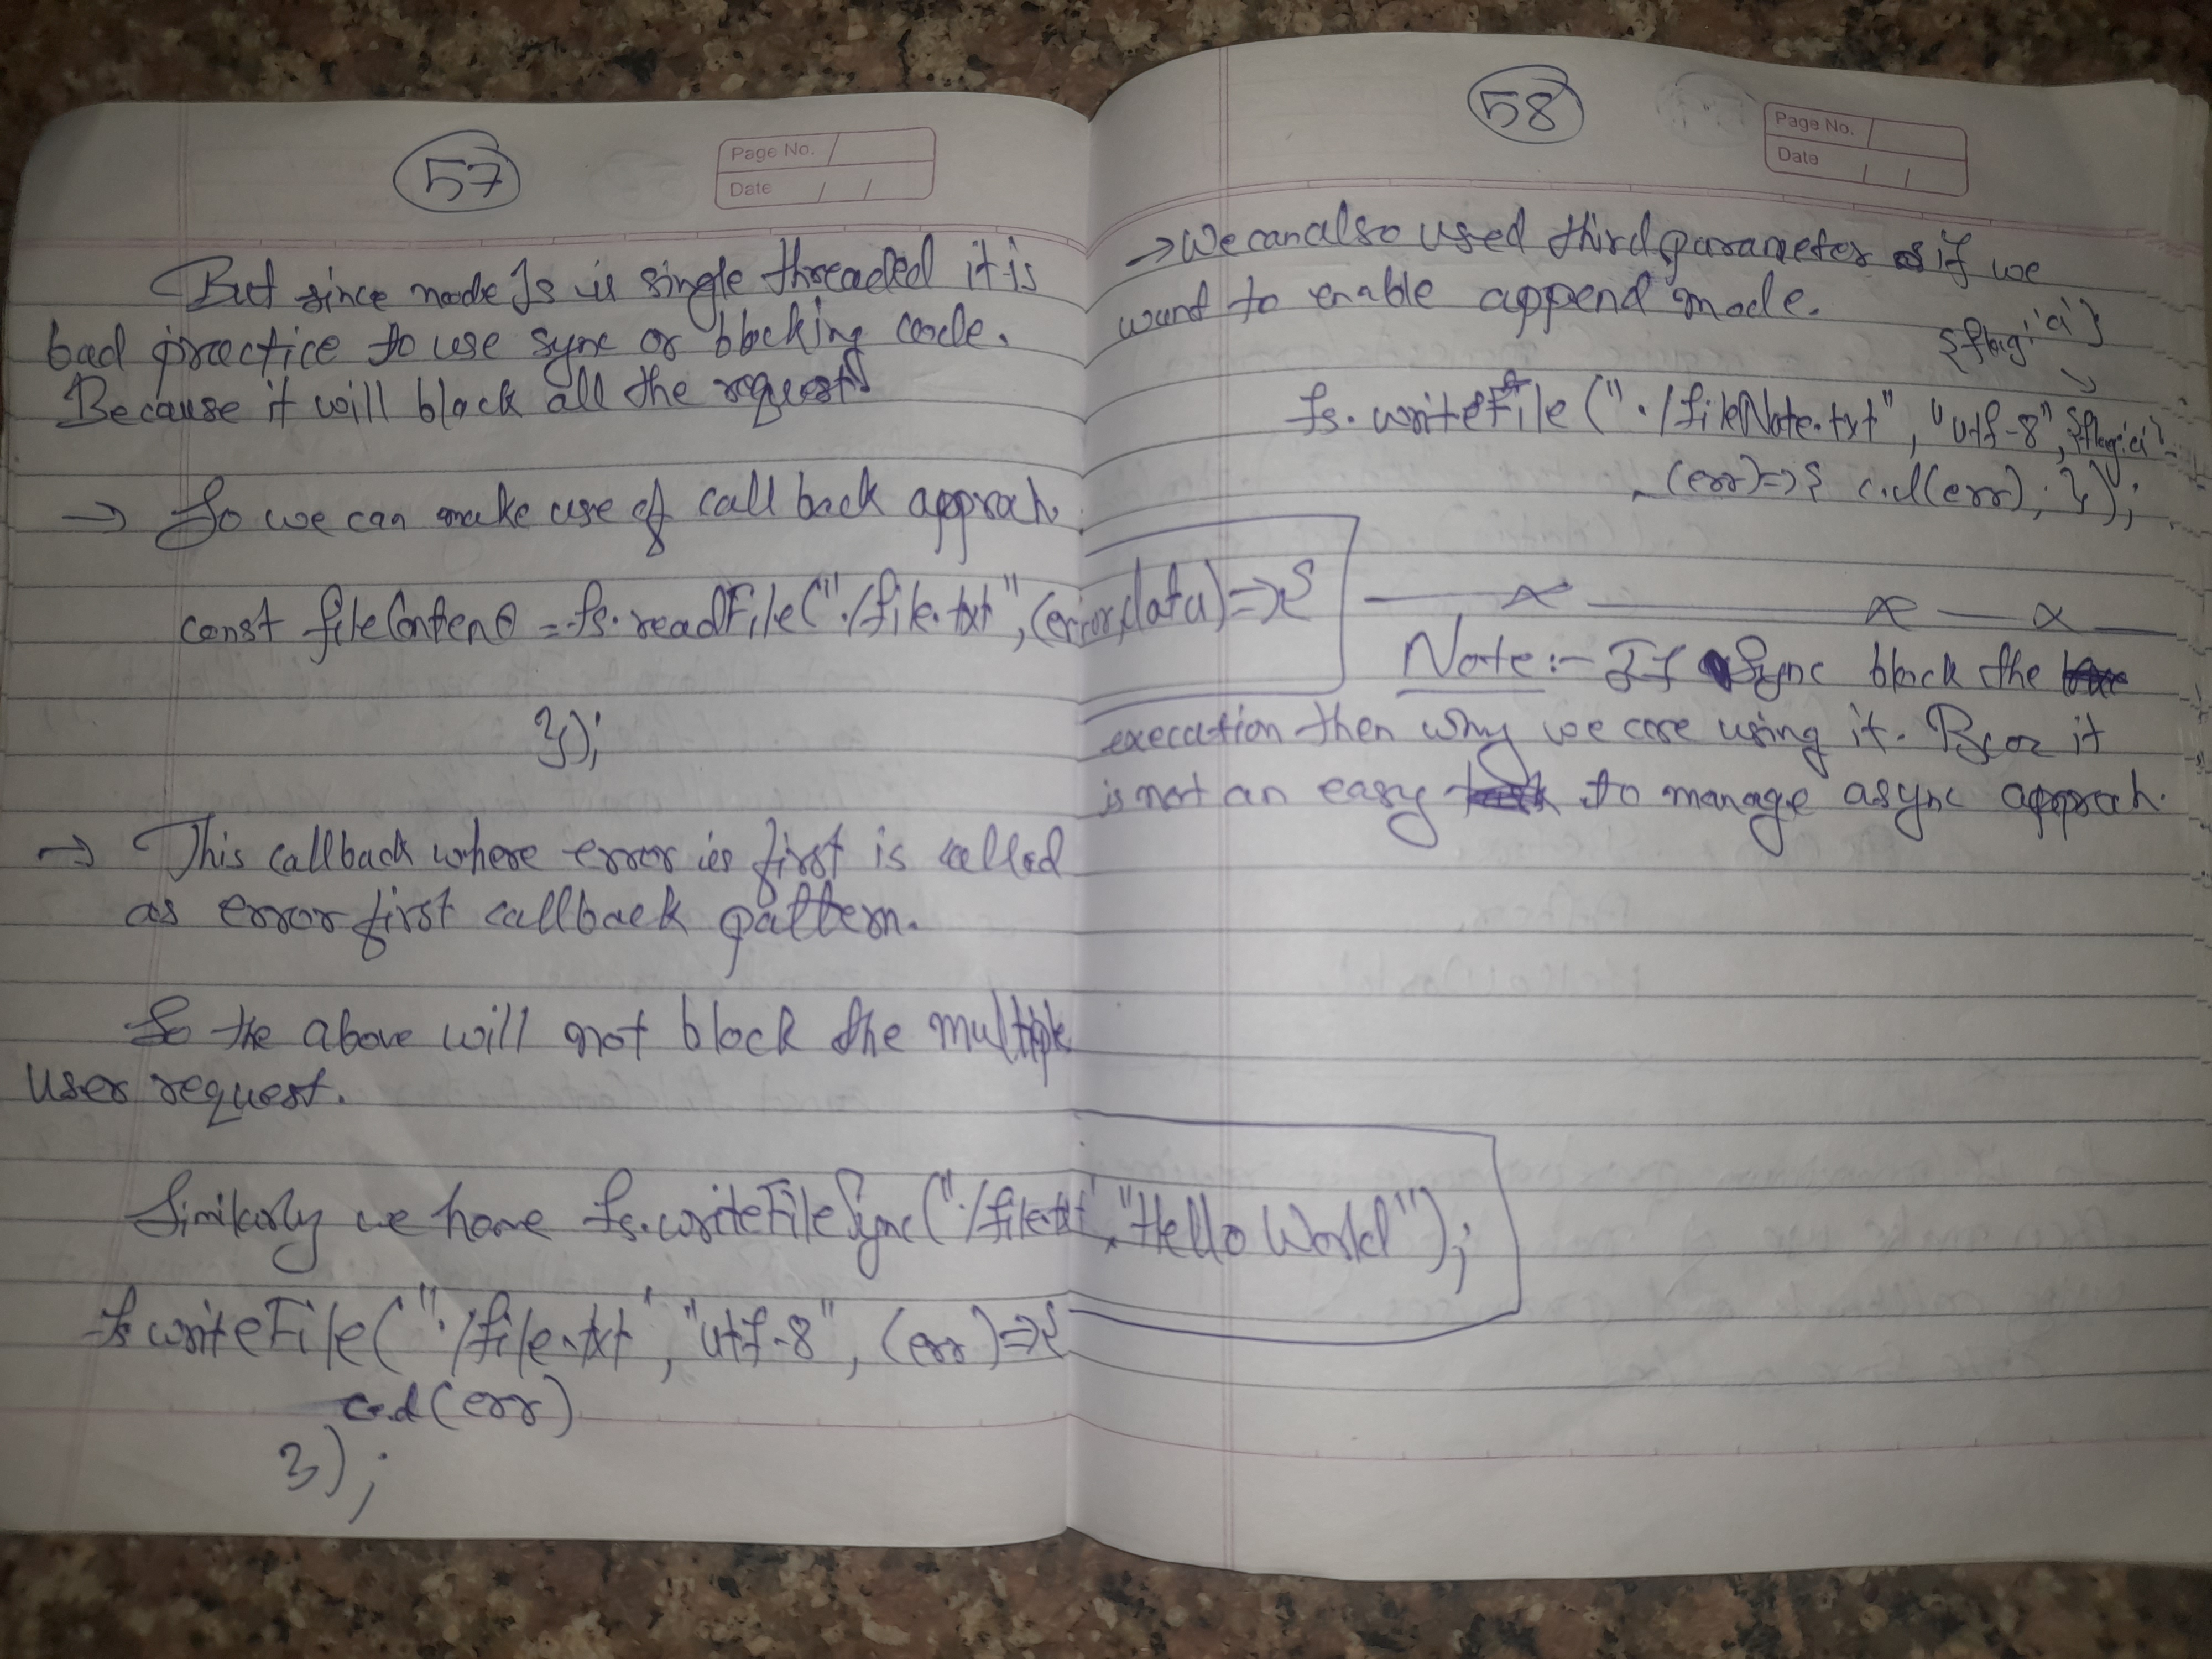 57
Page No.
Date / /
But since node Js is single threaded it is
bad practice to use sync or blocking code.
Because it will block all the request.
→ So we can make use of call back approah.
const fileContent = fs.readFile("./file.txt", (error, data) => {
});
→ This callback where error is first is called
as error first callback pattern.
So the above will not block the multiple
user request.
Similarly we have fs.writeFileSync("./file.txt", "Hello World");
fs writeFile("./file.txt', "utf-8", (err) => {
c.l(err)
});
58
Page No.
Date / /
→ We can also used third parameter if we
want to enable append mode.
{flag:'a'}
fs.writeFile("./fileNote.txt", "utf-8", {flag:'a'}
, (err) => { c.l(err); });
Note :- If Sync block the
execution then why we are using it. Bcoz it
is not an easy to manage async approah.